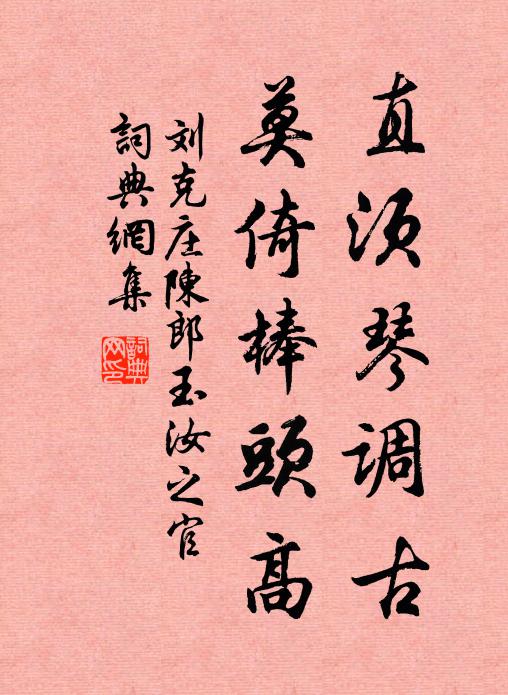 直须琴调古
莫倚棒頭高
刘克庄陳郎玉汝之官
詞典網集
詞典网印